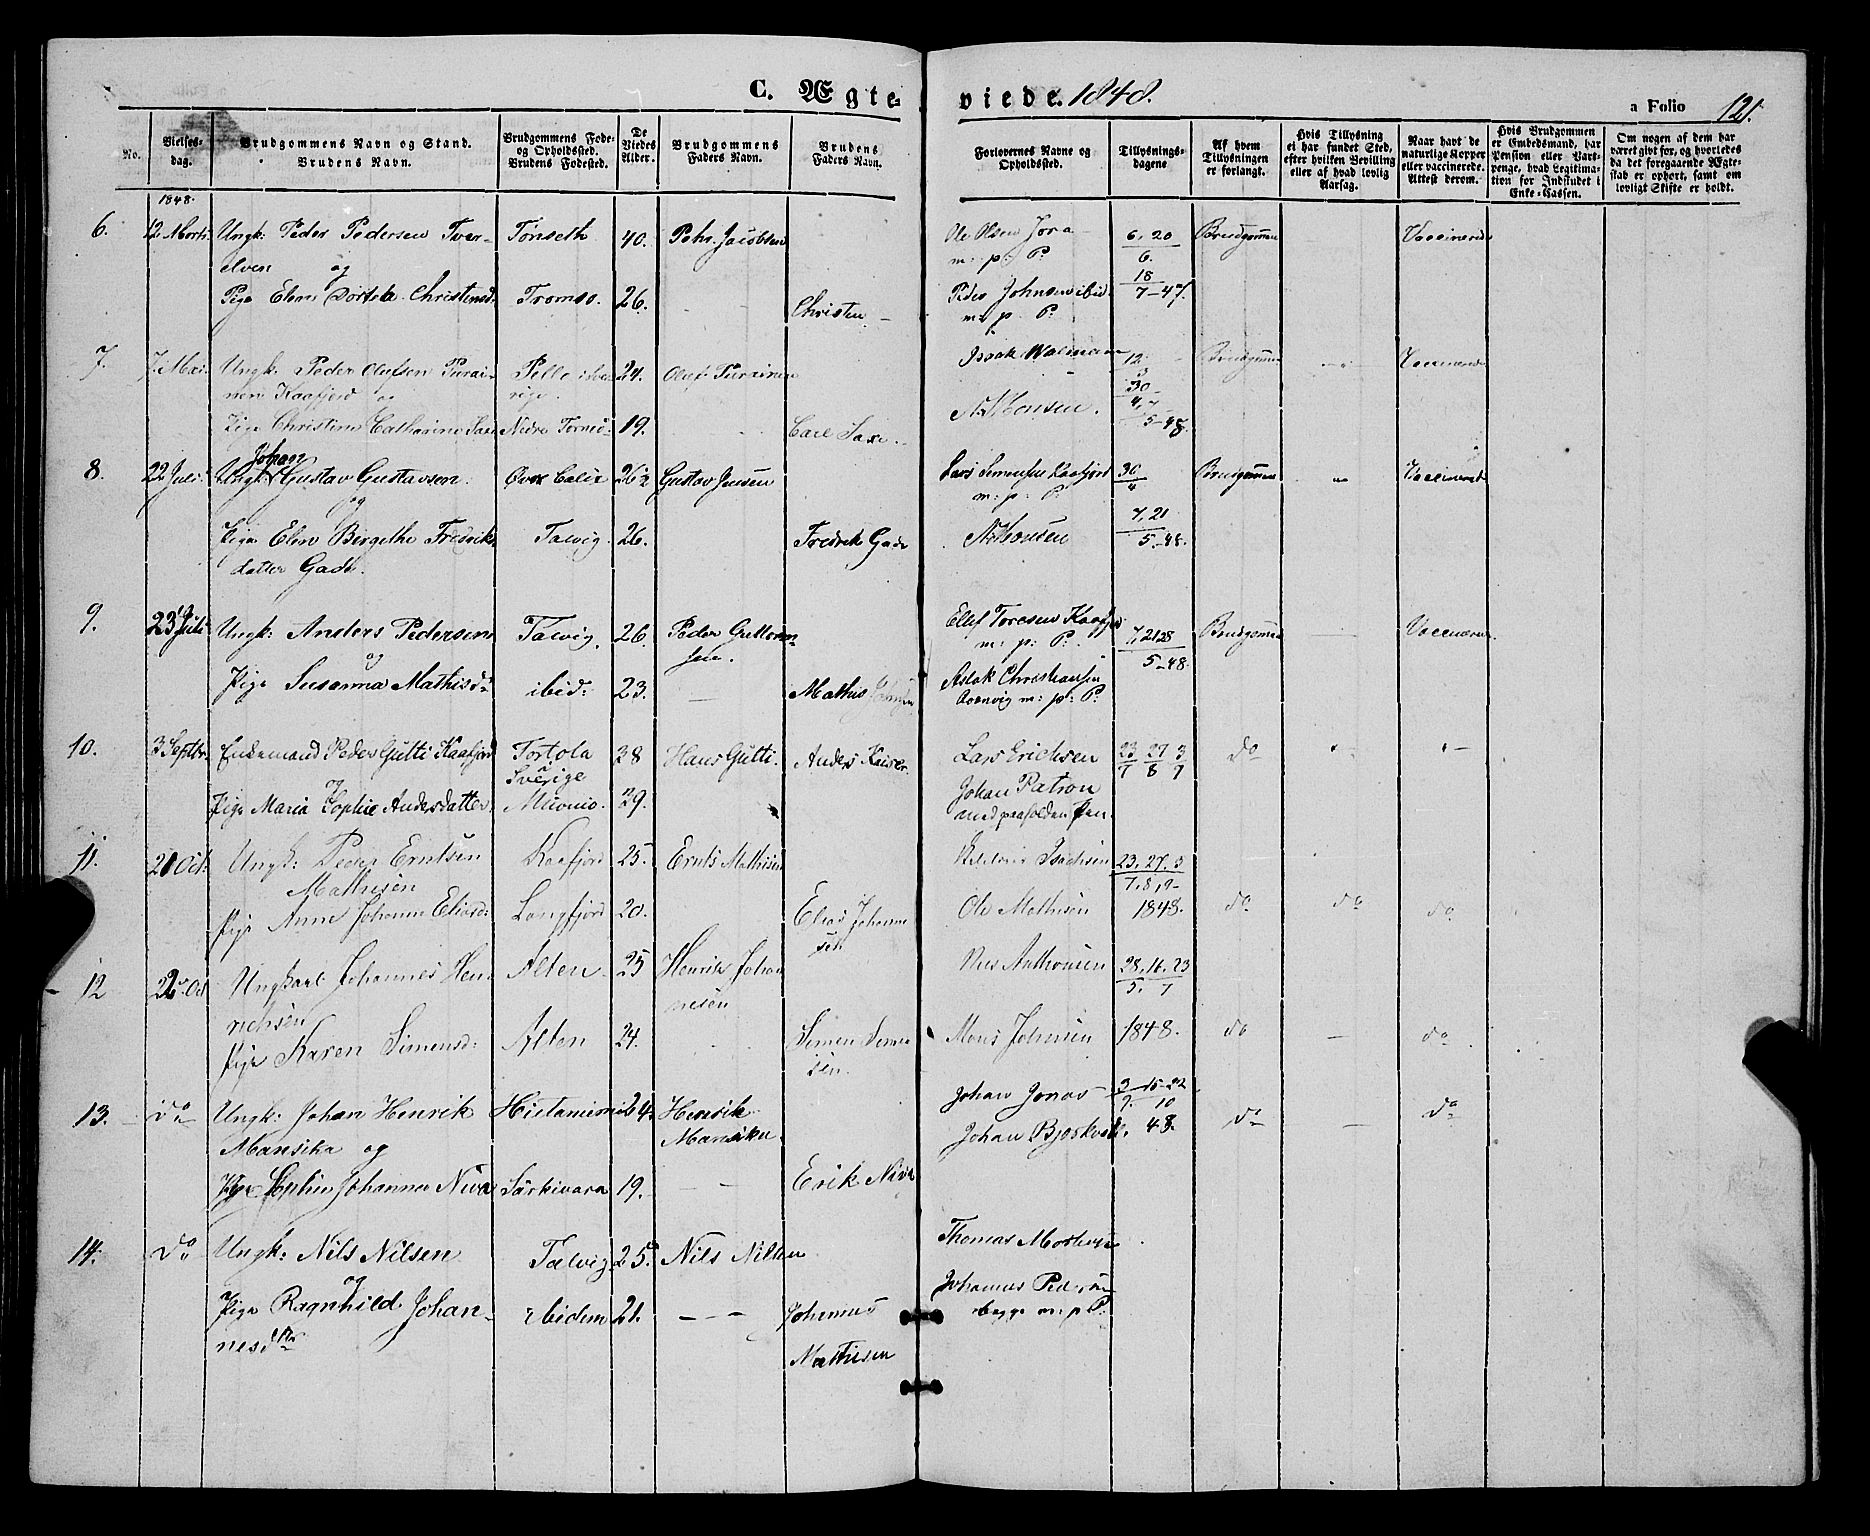 C. Ægteviede. 1848.
a Folio 121.
No.
Vielsesdag.
Brudgommens Navn og Stand. Brudens Navn.
Brudgommens Fode- og Opholdssted. Brudens Fodested.
De Viedes Alder.
Brudgommens Faders Navn.
Brudens Faders Navn.
Forlovernes Navne og Opholdssted.
Tillysningsdagene.
Af hvem Tillysningen er forlangt.
Hvis Tillysning ei har fundet Sted, efter hvilken Bevilling eller af hvad lovlig Aarsag.
Naar havt de naturlige Kopper eller vaccinerede. Attest derom.
Hvis Brudgommen er Embedsmand, har Pension eller Vartpenge, hvad Legitimation for Indskudet i Enke-Cassen.
Om nogen af dem har været givt for, og hvorledes da det foregaaende Ægteskab er ophort, samt om lovligt Skifte er holdt.
1848.
6. 12 Marts Ungk: Peder Pedersen Tver- Tønseth 40. Pehr. Jacobsen Ole Olsen Jora 6, 20 Brudgommen Vaccinerede
elven og m: p: P: 6.
Pige Elen Dorthea Christensd. Tromsø. 26. Christen Peder Johnsen ibid: 18
m: p: P: 7-47.
7. 7. Mai Ungk: Peder Olufsen Purai- Pello i Sve- 24. Oluf Purainen Isaak Walmann 12 Brudgommen Vaccinerede
nen Kaafjord og rige. 30
Pige Christine Catharine Saxe Nedre Torneå 19. Carl Saxe N. Monsen. 5-48.
8. 22 Juli Ungk: Johan Gustav Gustavsen Øvre Calix 26½ Gustav Jensen Lars Simonsen Kaafjord 30 Brudgommen Vaccinerede
og m: p: P: 4
Pige Elen Bergethe Fredriks- Talvig. 26. Fredrik Gade N. Monsen 7, 21
datter Gade. 5-48.
9. 23 Juli Ungk: Anders Pedersen Talvig. 26. Peder Guttorm- Ellef Toresen Kaafjord 7, 21 28 Brudgommen Vaccinerede
og sen. m: p: P: 5-48.
Pige Susanna Mathisd: ibid: 23. Mathis Aslak Christiansen
m: p: P:
10. 3 Septbr. Enkemand Peder Gutti Kaafjord Tortola 38 Hans Gutti. Anders Kaiser Lars Erichsen 23 27 3 do
og Sverige Johan Patron 7 8 9
Pige Maria Sophie Andersdatter Muonio. 29. med paaholden Pen.
11. 21 Oct. Ungk: Peder Erntsen Kaafjord 25. Ernts Mathisen Isachsen 23, 27, 3
Mathisen 7, 8, 9-
Pige Anne Johanne Eliasd: Langfjord 20. Elias Johanne Ole Mathisen 1848. do do do
sen
12 22 Oct Ungkarl Johannes Hen- Alten 25 Henrik Johan Nils Anthonsen 28, 16, 23
richsen nesen 5, 7
Pige Karen Simensd: Alten 24. Simen Mons Johnsen 1848. do do
sen.
13. do Ungk: Johan Henrik Hietaniemi 24. Henrik Johan Jonas 3 15-22 do do
Mansika og Mansika. 9. 10
Pige Sophie Johanna Niva Särkivara 19. Erik Niva Johan 48.
14. do Ungk: Nils Nilsen Talvig 25. Nils Nilsen Thomas Mortensen
og
Pige Ragnhild Johan- ibidem 21. Johannes Johannes Pedersen
nesdtr Mathisen begge m: p: P: